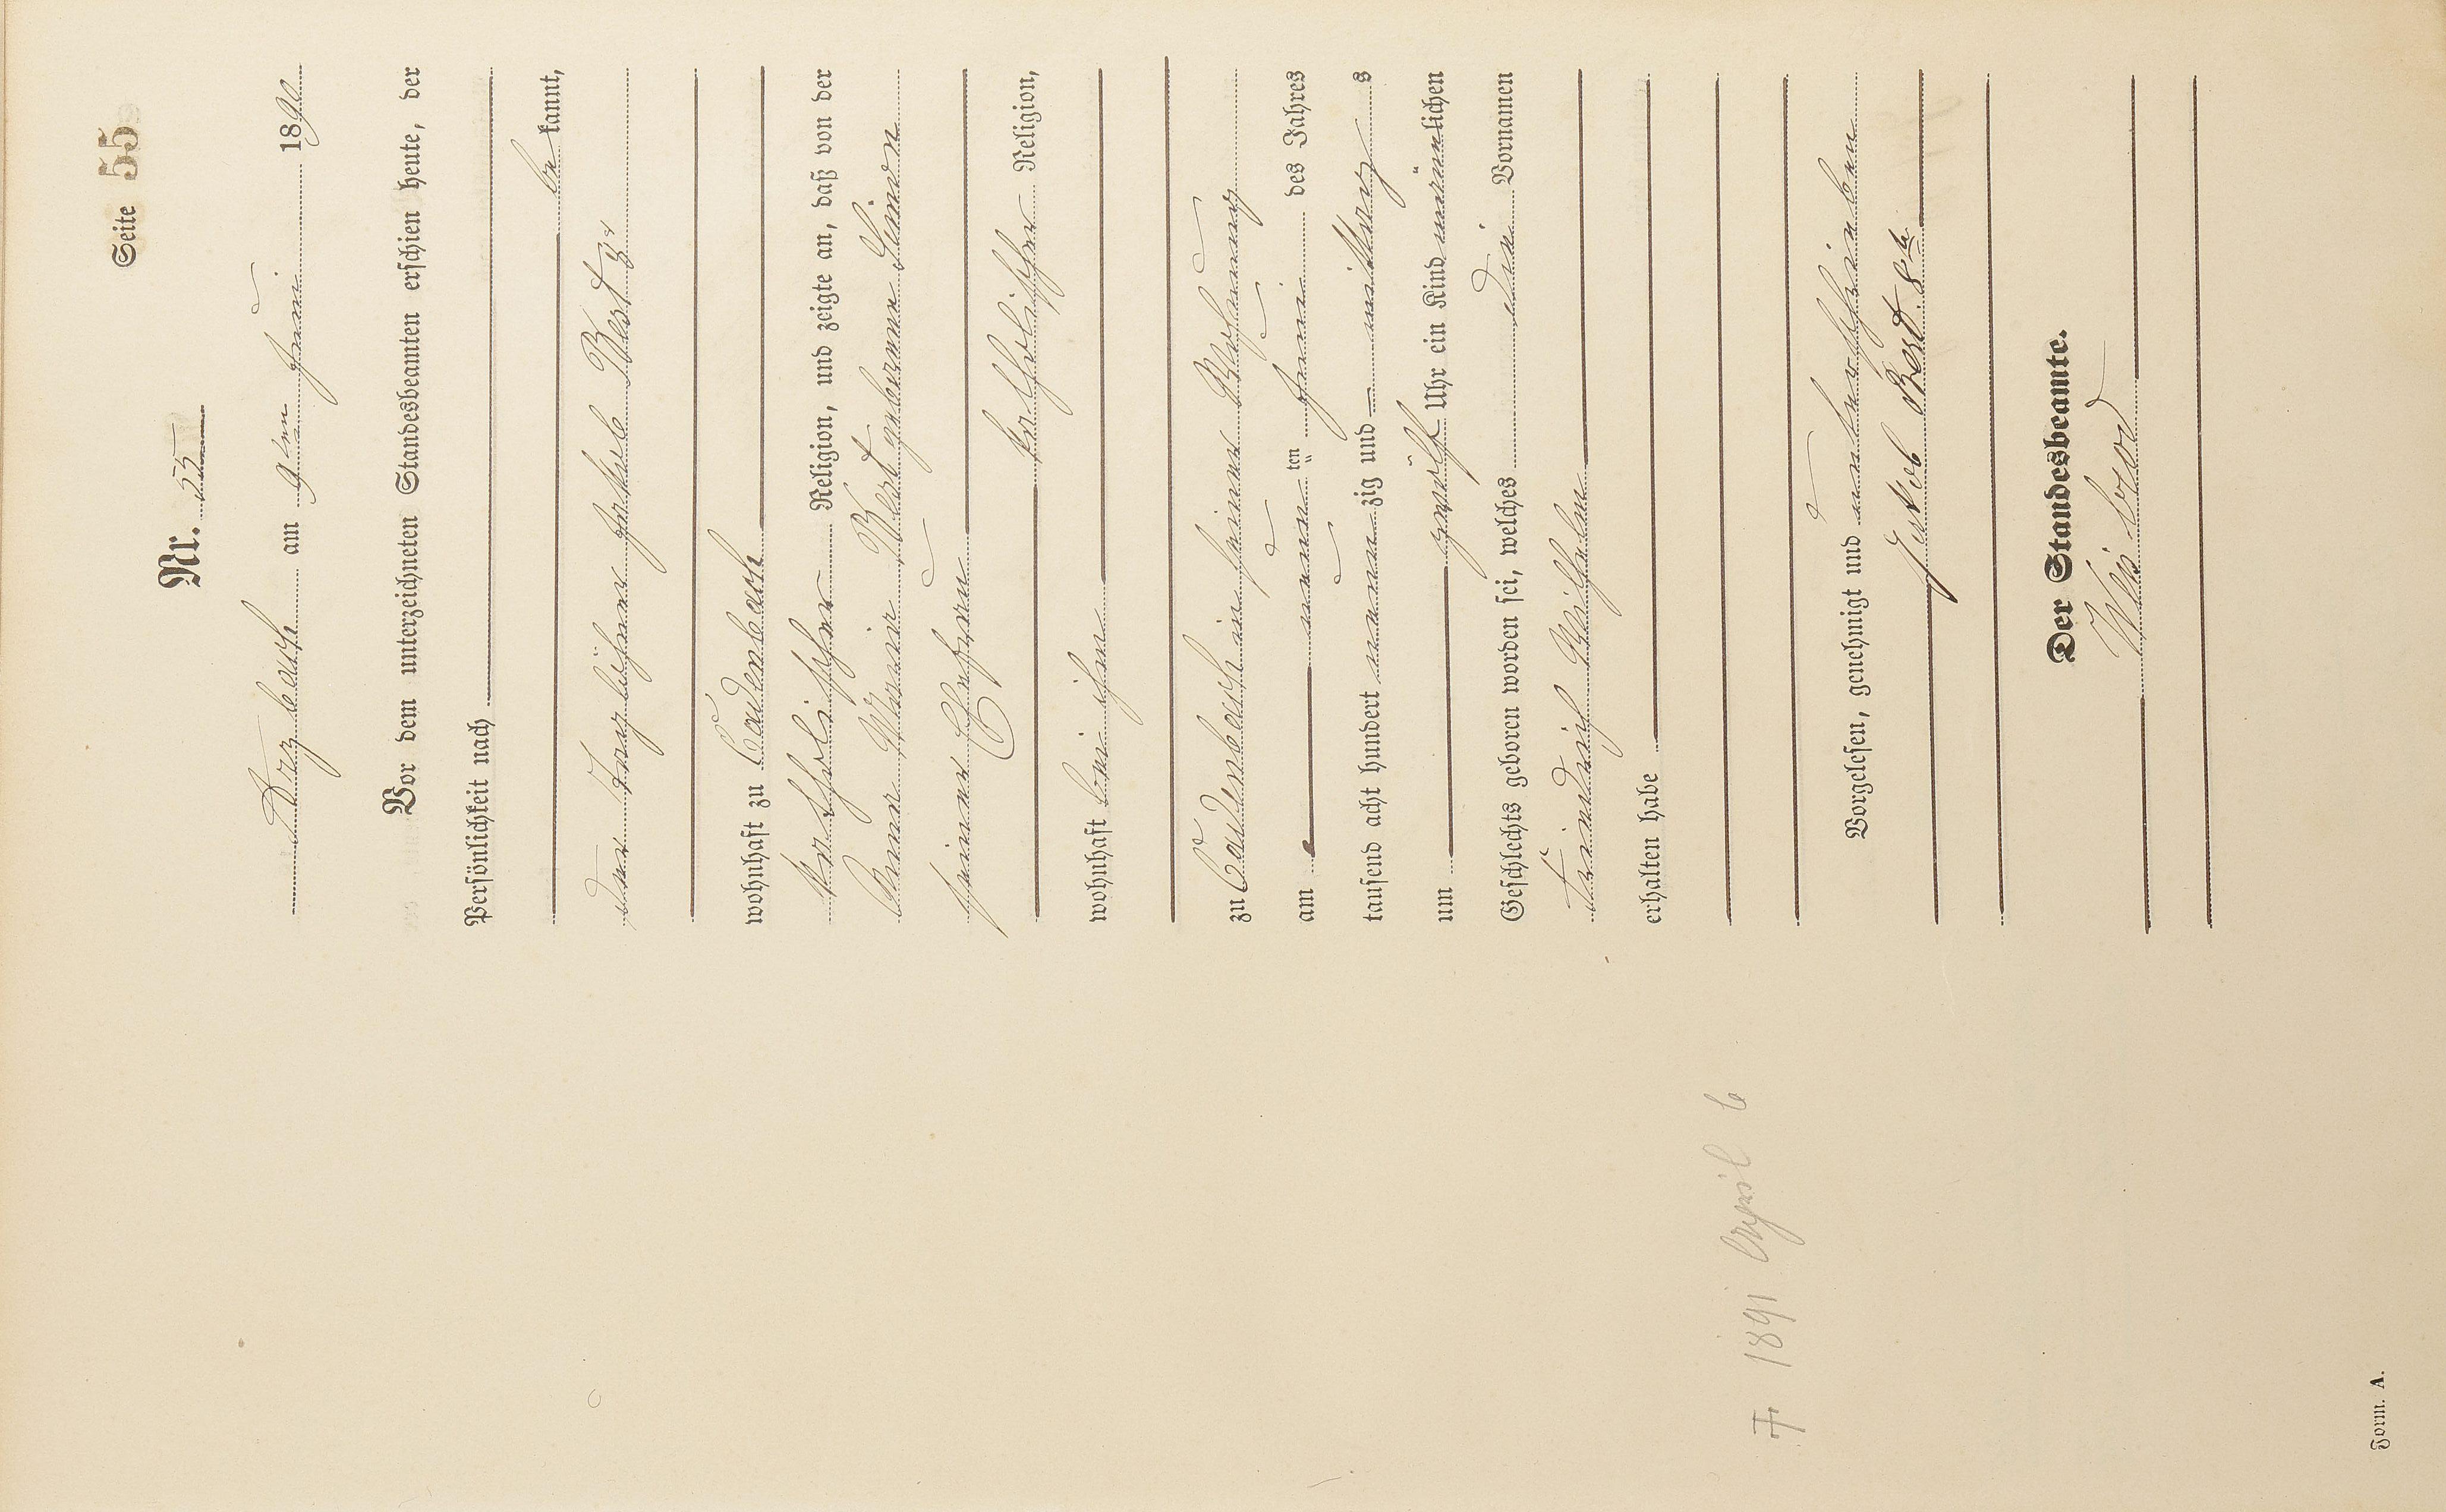 Seite 55
Nr. 55
Arzbach am 9ten Juni 1890
Vor dem unterzeichneten Standesbeamten erschien heute, der
Persönlichkeit nach
be kannt,
der Taglöhner Jakob Best 3r
wohnhaft zu Cadenbach
katholischer Religion, und zeigte an, daß von der
Anna Maria Best geborenen Simon
seiner Ehefrau
katholischer Religion,
wohnhaft bei ihm
zu Cadenbach in seiner Wohnung
am neun ten Juni des Jahres
tausend acht hundert neun zig und mittags
um zwölf Uhr ein Kind männlichen
Geschlechts geboren worden sei, welches den Vornamen
Friedrich Wilhelm
erhalten habe
Vorgelesen, genehmigt und unterschrieben
Jakob Best
Der Standesbeamte.
† 1891 April 6
Form. A.